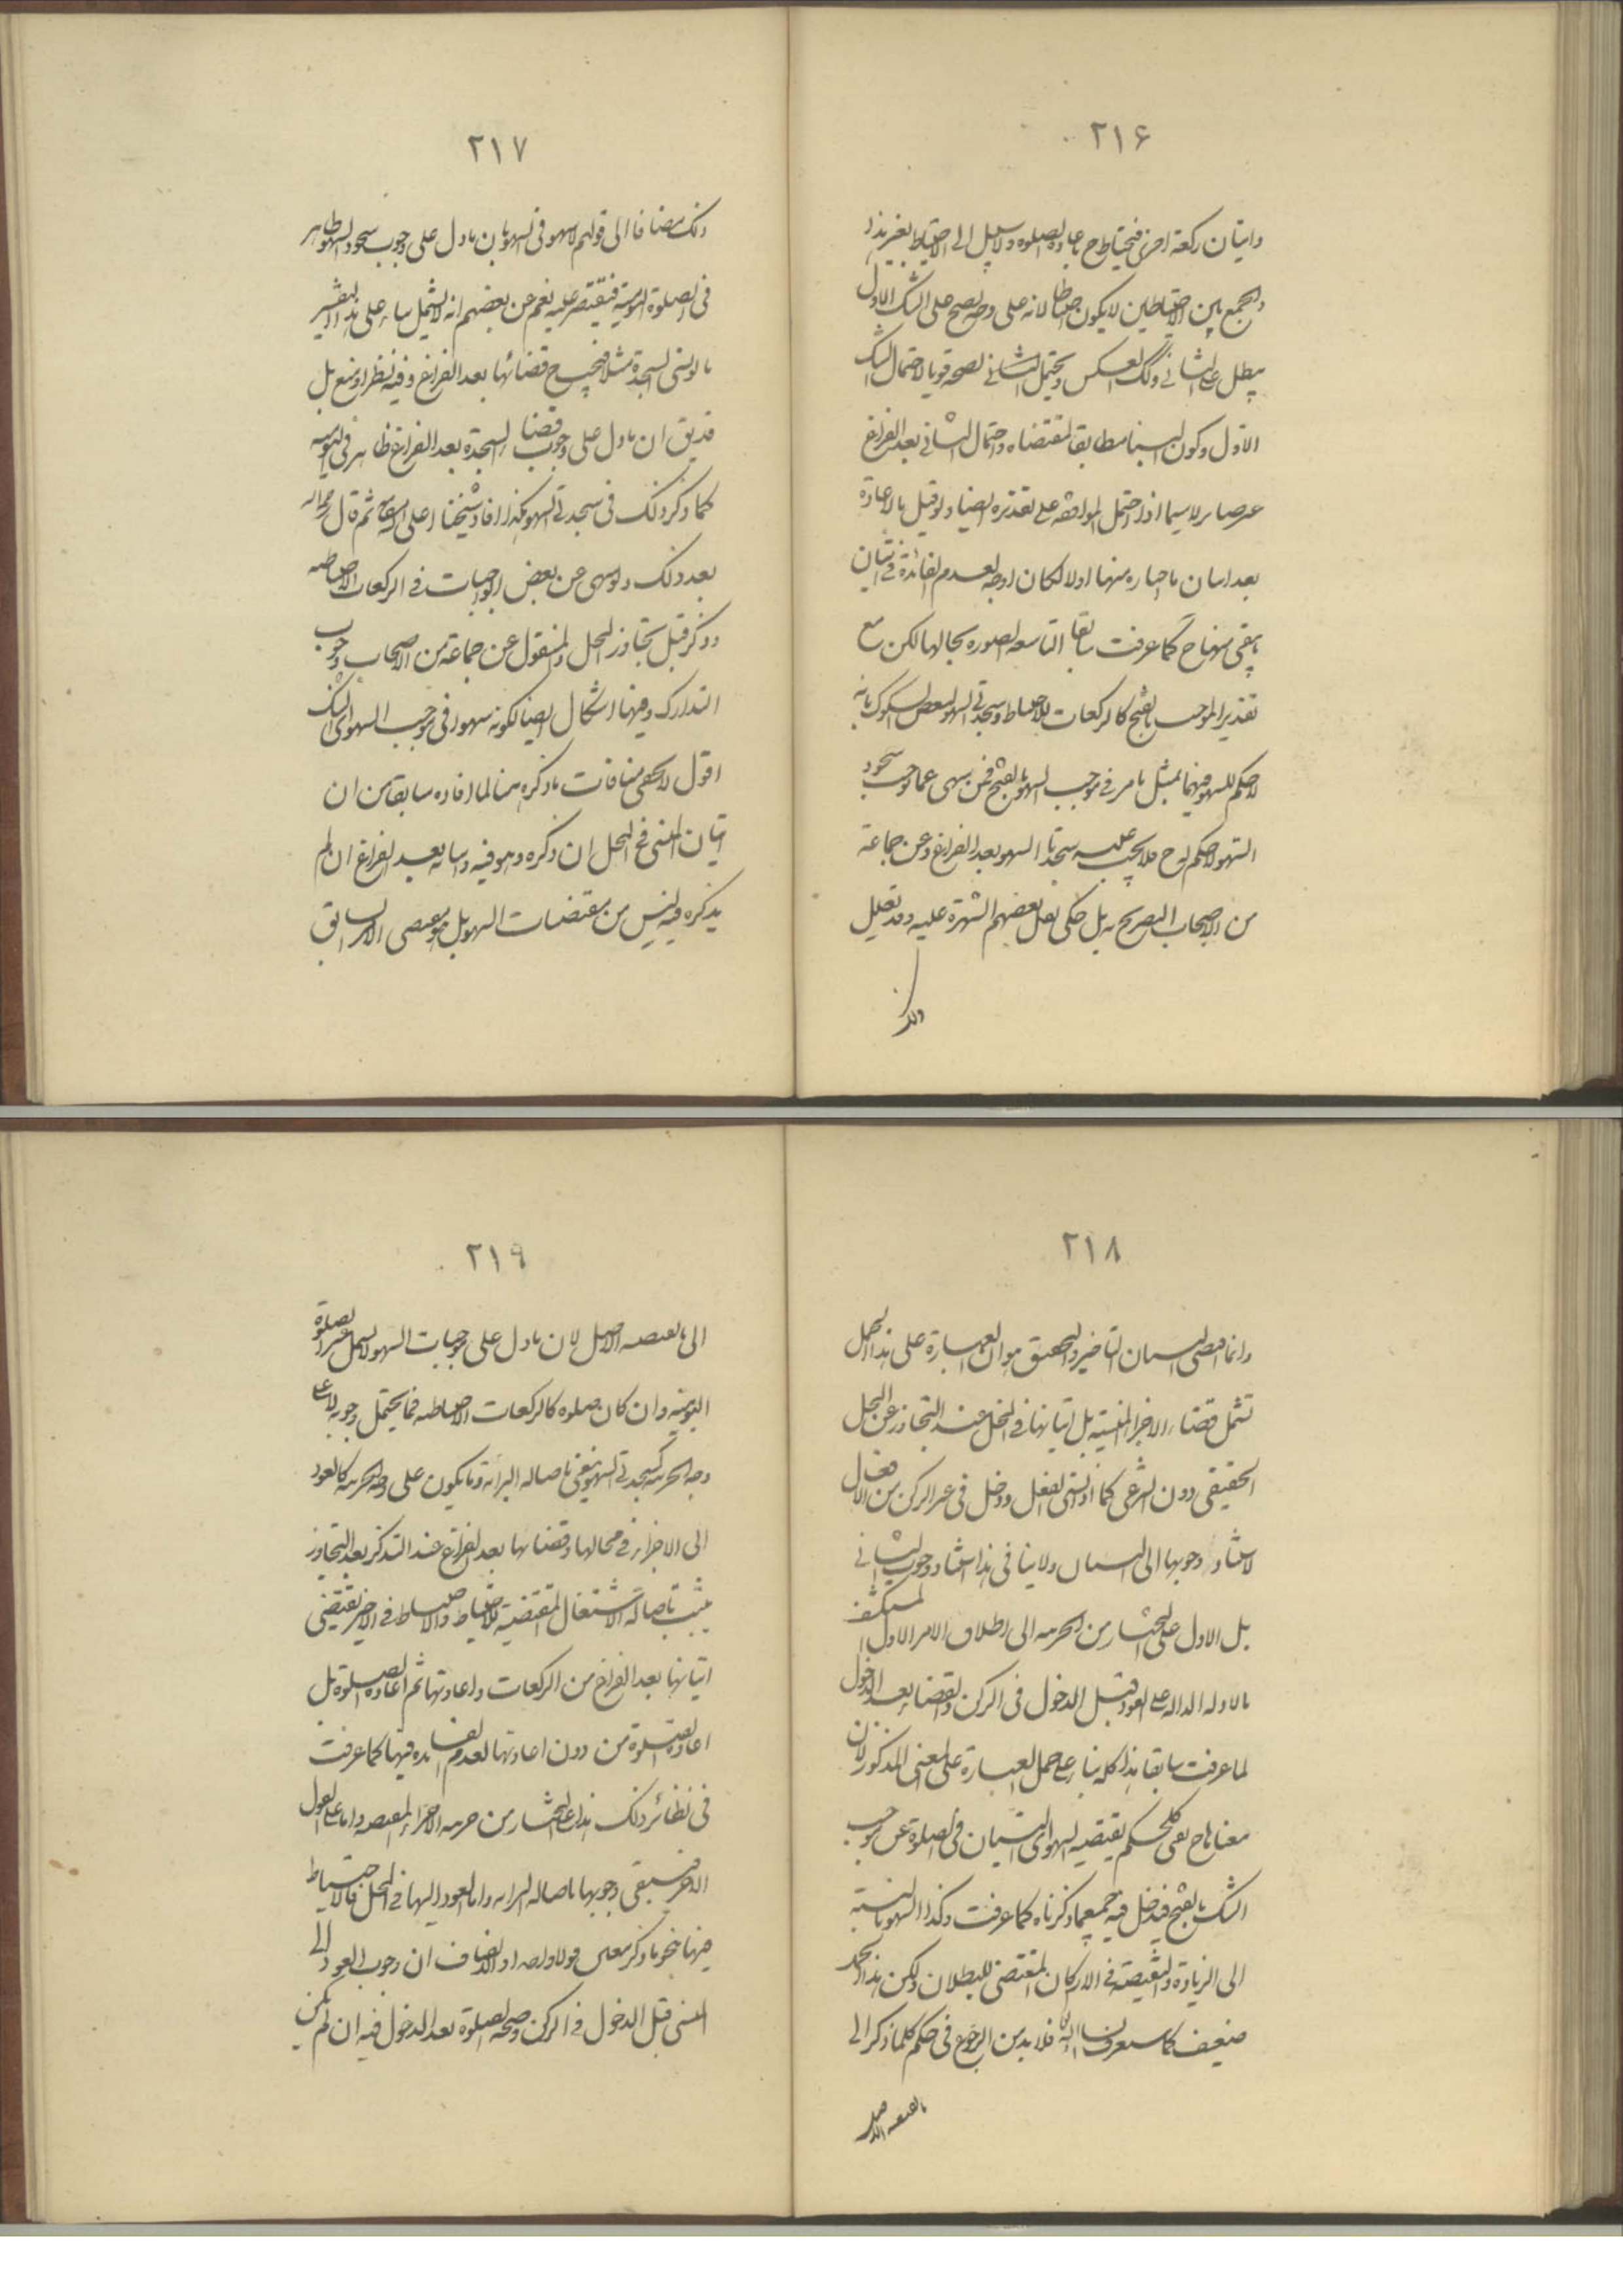 ٢١۶
واتيان ركعة اخرى فيحتاط ح باعادة الصلوة ولا سبيل الى الاحتياط بغير هذا
والجمع بين الاحتياطين لا يكون احتياطا لانه على وجه يصح على الشك الاول
يبطل على الثانى وكذلك العكس ويحتمل الثانى لصحة قويا لاحتمال الشك
الاول وكون البناء مطابقا لمقتضاه واحتمال الثانى بعد الفراغ
غير صاير لا سيما اذا احتمل الموافقة على تقديره ايضا ولو قيل بالاعادة
بعد اتيان ما اختاره منها اولا لكان اوجه لعدم الفائدة فى اتيان
ما بقى منها ح كما عرفت سابقا التاسعة الصورة بحالها لكن مع
تقدير الموجب بالفتح كالركعات للاحتياط وسجدتى السهو لبعض الشكوك بانه
لا حكم للسهو فيهما بمثل ما مر فى موجب السهو بالفتح فمن سهى عما يوجب سجود
السهو لا حكم له ح فلا يجب عليه سجدتا السهو بعد الفراغ وعن جماعة
من الاصحاب التصريح به بل حكى نقل بعضهم الشهرة عليه وقد تعليل
ذلك
٢١٧
ذلك مضافا الى قولهم لا سهو فى السهو بان ما دل على وجوب سجود السهو ظاهر
فى الصلوة اليومية فيقتصر عليه نعم عن بعضهم انه لا يشمل بناء على هذا التفسير
ما لو نسى السجدة مثلا فيجب ح قضائها بعد الفراغ وفيه نظر او منع بل
قد يق ان ما دل على وجوب قضاء السجدة بعد الفراغ ظاهر فى اليومية
كما ذكر ذلك فى سجدتى السهو هكذا افاد شيخنا اعلى الله مقامه ثم قال رحمه الله
بعد ذلك ولو سهى عن بعض الواجبات فى الركعات الاحتياطيه
وذكر قبل تجاوز المحل والمنقول عن جماعة من الاصحاب وجوب
التدارك وفيها اشكال ايضا لكونه سهوا فى موجب السهو اى الشك
اقول لا يخفى منافات ما ذكره هنا لما افاده سابقا من ان
اتيان المنسى فى المحل ان ذكره وهو فيه واتيانه بعد الفراغ ان لم
يذكره فيه ليس من مقتضيات السهو بل هو مقتضى الامر السابق
٢١٨
وانما اقتضى النسيان التاخير والتحقيق هو ان العبارة على هذا الحمل
تشمل قضاء الاجزاء المنسية بل اتيانها فى المحل عند التجاوز عن المحل
الحقيقى دون الشرعى كما اذا نسى الفعل ودخل فى غير الركن من الافعال
لاستناد وجوبها الى النسيان ولا ينافى هذا استناد وجوب الثانى
بل الاول على المختار من الجزئيه الى اطلاق الامر الاول المستكشف
بالادلة الدالة على العود قبل الدخول فى الركن والقضاء بعد الدخول
لما عرفت سابقا هذا كله بناء على حمل العبارة على المعنى المذكور لان
معناها ح نفى كل حكم يقتضيه السهو اى النسيان فى الصلوة عن موجب
الشك بالفتح فيدخل فيه جميع ما ذكرناه كما عرفت وكذا السهو بالنسبة
الى الزيادة والنقيصة فى الاركان المقتضى للبطلان ولكن هذا الحمل
ضعيف كما ستعرف انشاء الله فلا بد من الرجوع فى حكم كلما ذكر الى
ما يقتضيه الاصل
٢١٩
الى ما يقتضيه الاصل لان ما دل على موجبات السهو لا يشمل غير الصلوة
اليومية وان كان صلوة كالركعات الاحتياطيه فما يحتمل وجوبه لا على
وجه الجزئيه كسجدتى السهو ينفى باصالة البرائة وما يكون على وجه الجزئيه كالعود
الى الاجزاء فى محالها وقضائها بعد الفراغ عند التذكر بعد التجاوز
يثبت باصالة الاشتغال المقتضية للاحتياط والاحتياط فى الاخير يقتضى
اتيانها بعد الفراغ من الركعات واعادتها ثم اعادة الصلوة بل
اعادة الصلوة من دون اعادتها لعدم الفائدة فيها كما عرفت
فى نظائر ذلك هذا على المختار من جزئية الاجزاء المقضيه واما على القول
الاخر فينفى وجوبها باصالة البرائه واما العود اليها فى المحل فالاحتياط
فيها بنحو ما ذكر والانصاف ان وجوب العود الى
المنسى قبل الدخول فى الركن وصحة الصلوة بعد الدخول فيه ان لم يكن